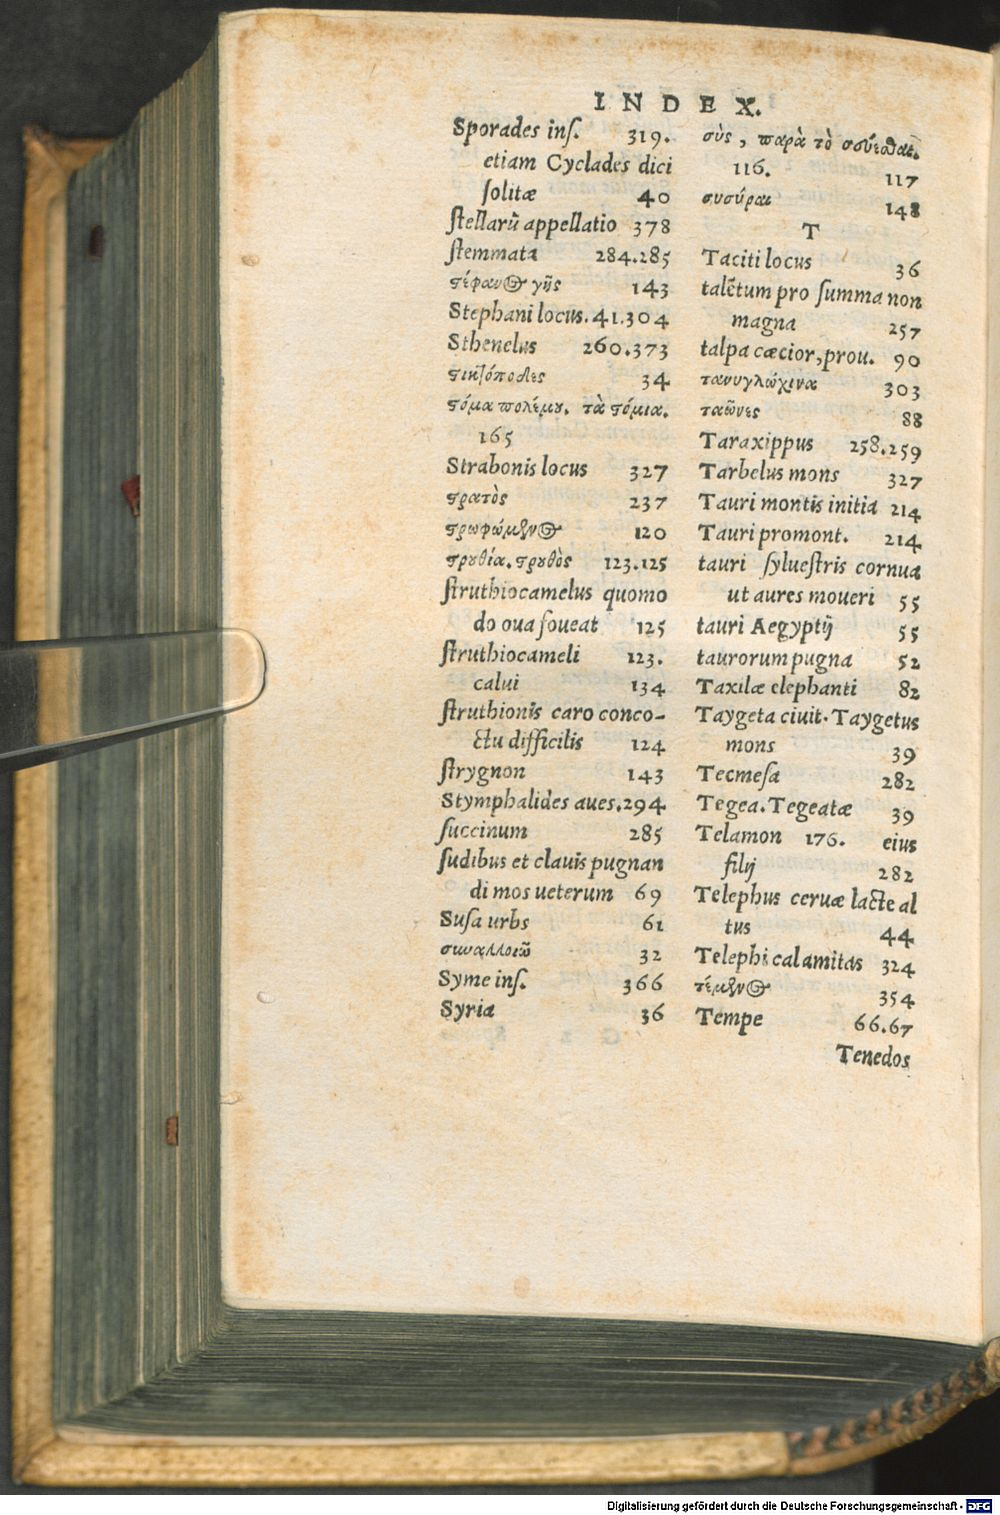 INDEX.
Sporades ins. 319.
etiam Cyclades dici
solitæ 40
stellarũ appellatio 378
stemmata 284.285
στέφανος γῆς 143
Stephani locus. 41.304
Sthenelus 260.373
στικτόποδες 34
στόμα πολέμου. τὰ στόμια.
165
Strabonis locus 327
στρατὸς 237
στρωφώμενος 120
στρουθία. στρουθὸς 123.125
struthiocamelus quomo
do oua foueat 125
struthiocameli 123.
calui 134
struthionis caro conco-
ctu difficilis 124
strygnon 143
Stymphalides aues. 294
succinum 285
sudibus et clauis pugnan
di mos ueterum 69
Susa urbs 61
συναλλοιῶ 32
Syme ins. 366
Syria 36
σὺς, παρὰ τὸ σεύεσθαι.
116. 117
συσύραι 148
T
Taciti locus 36
talẽtum pro summa non
magna 257
talpa cæcior, prou. 90
τανυγλώχινα 303
ταῶνες 88
Taraxippus 258.259
Tarbelus mons 327
Tauri montis initia 214
Tauri promont. 214
tauri syluestris cornua
ut aures moueri 55
tauri Aegyptij 55
taurorum pugna 52
Taxilæ elephanti 82
Taygeta ciuit. Taygetus
mons 39
Tecmesa 282
Tegea. Tegeatæ 39
Telamon 176. eius
filij 282
Telephus ceruæ lacte al
tus 44
Telephi calamitas 324
τέμενος 354
Tempe 66.67
Tenedos
Digitalisierung gefördert durch die Deutsche Forschungsgemeinschaft - DFG